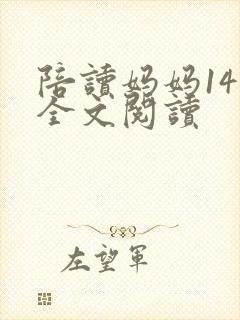 陪讀妈妈14
全文閱讀
左望軍